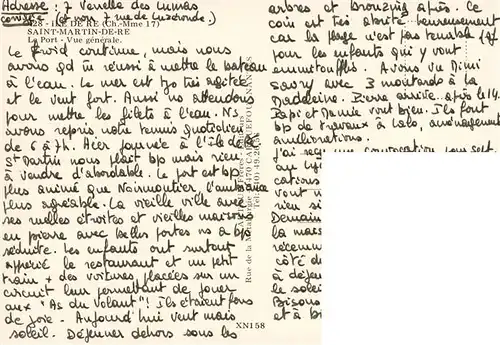 Adresse : 7 Venelle des Cumas
corrigée (et non 7 rue de
328 - ILE DE RÉ (Ch.-Mme 17)
SAINT-MARTIN-DE-RE
Le Port - Vue générale.
Le froid continue, mais nous
avons qd m̂ réussi à mettre le bateau
à l'eau. Le mer est tjo très agitée
et le vent fort. Aussi ns attendons
pour mettre les filets à l'eau. Ns
avons repris notre tennis quotidien
de 6 à 7h. Hier journée à l'île de Ré
St Martin nous plaît bp mais rien
à vendre d'abordable. Le port est bp
plus animé que Noirmoutier, l'ambiance
plus agréable. La vieille ville avec
ses ruelles étroites et vieilles maisons
en pierre avec belles portes ns a bp
séduite. Les enfants ont surtout
apprécié le restaurant et un petit
train + des voitures placées sur un
circuit leur permettant de jouer
aux "As du Volant"! Ils étaient fous
de joie. Aujourd'hui vent mais
soleil. Déjeuner dehors sous les
XN158
Rue de la
arbres et bronzing après. Ce
coin est très abrité heureusement
car la plage n'est pas tenable (sf
pour les enfants qui y vont
emmitouflés. Avons vu Mimi
Sassy avec 3 moutards à la
Madeleine. Pierre arrive après le 14.
Papi et Mamie vont bien. Ils font
bp de travaux à Lalo, aménagement
améliorations.
J'ai reçu une convocation
au
cations
vont
rien si
Demain
la mass
récemm
côté d
à déje
le solei
Bisous
et à b